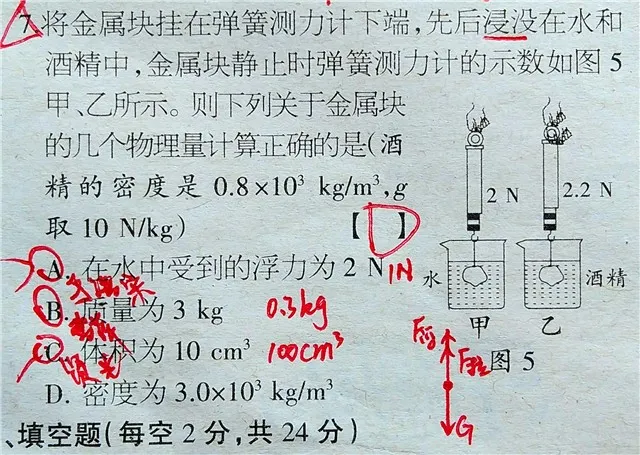 7.将金属块挂在弹簧测力计下端,先后浸没在水和
酒精中,金属块静止时弹簧测力计的示数如图5
甲、乙所示。则下列关于金属块
的几个物理量计算正确的是(酒
精的密度是0.8×10³ kg/m³,g
取10 N/kg)【D】
2 N
2.2 N
A. 在水中受到的浮力为2 N 1N
水
酒精
B. 质量为3 kg 0.3kg
甲 乙
C. 体积为10 cm³ 100cm³
F浮
F拉
图5
D. 密度为3.0×10³ kg/m³
G
、填空题(每空2分,共24分)